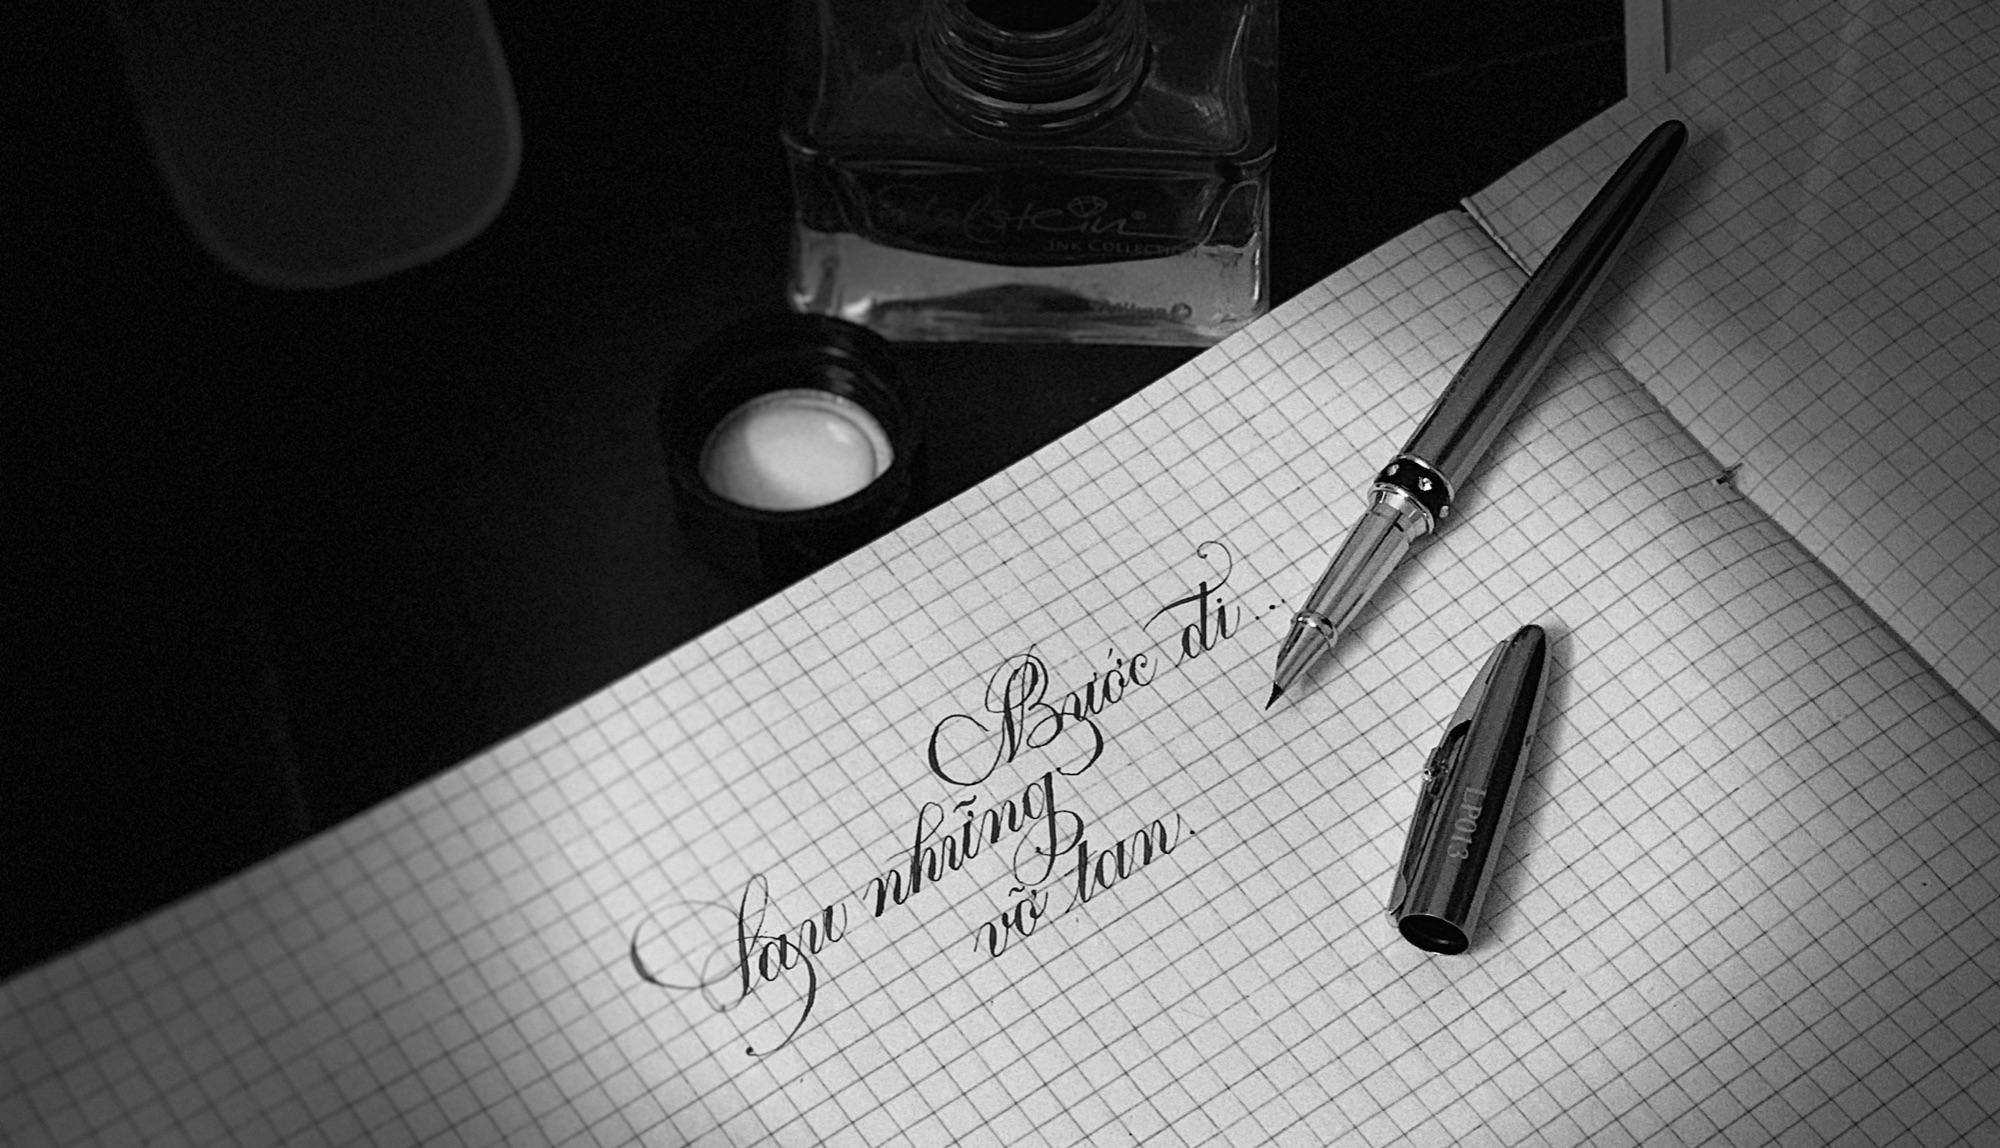 Edelstein
INK COLLECTION
Bước đi ...
Sau những
vỡ tan.
LP013